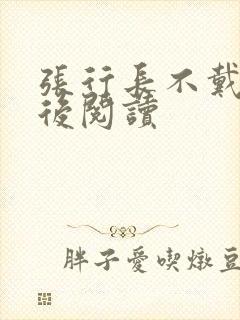 張行長不戴
後閱讀
胖子愛喫燉豆